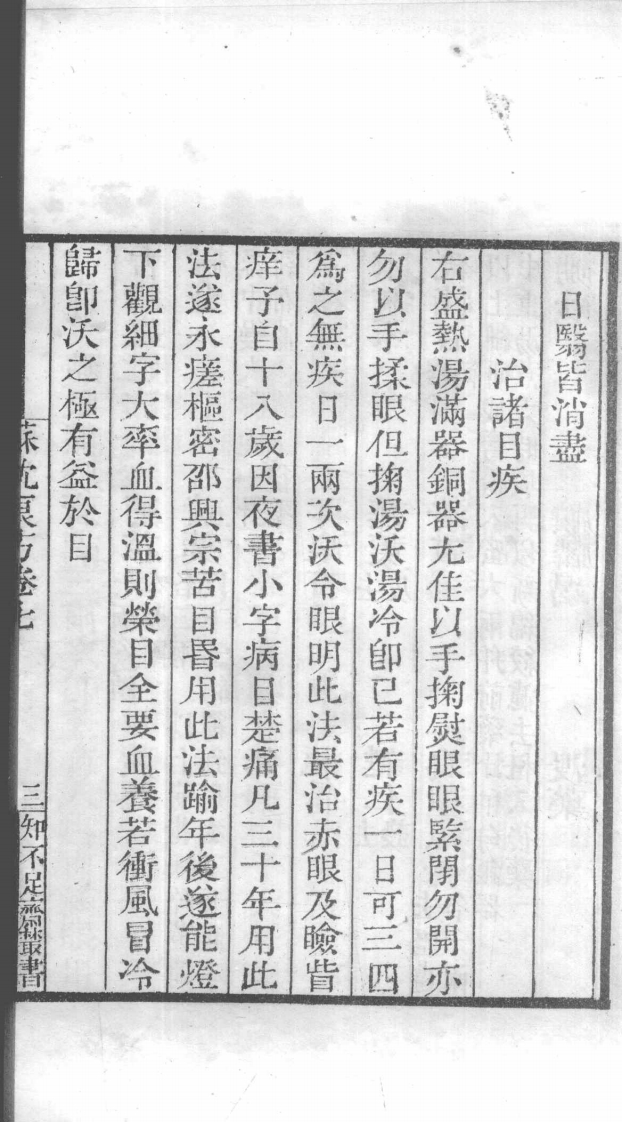 日翳皆消盡
治諸目疾
右盛熱湯滿器銅器尤佳以手掬熨眼眼緊閉勿開亦
勿以手揉眼但掬湯沃湯冷卽已若有疾一日可三四
爲之無疾日一兩次沃令眼明此法最治赤眼及瞼眥
痒予自十八歲因夜書小字病目楚痛凡三十年用此
法遂永瘥樞密邵興宗苦目昬用此法踰年後遂能燈
下觀細字大率血得溫則榮目全要血養若衝風冒冷
歸卽沃之極有益於目
蘇沈良方卷七
三
知不足齋叢書